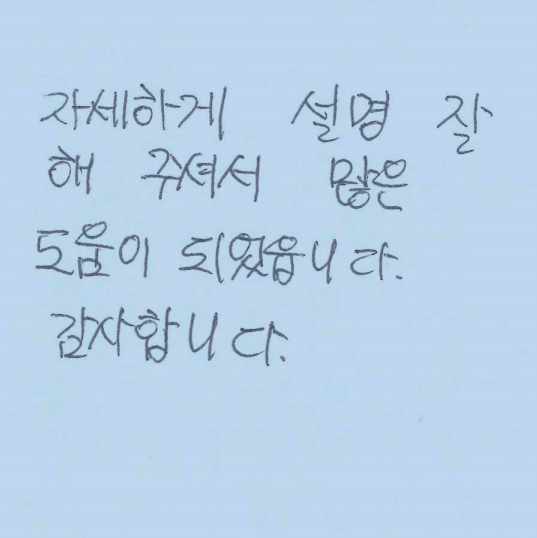 자세하게 설명 잘
해 주셔서 많은
도움이 되었읍니다.
감사합니다.